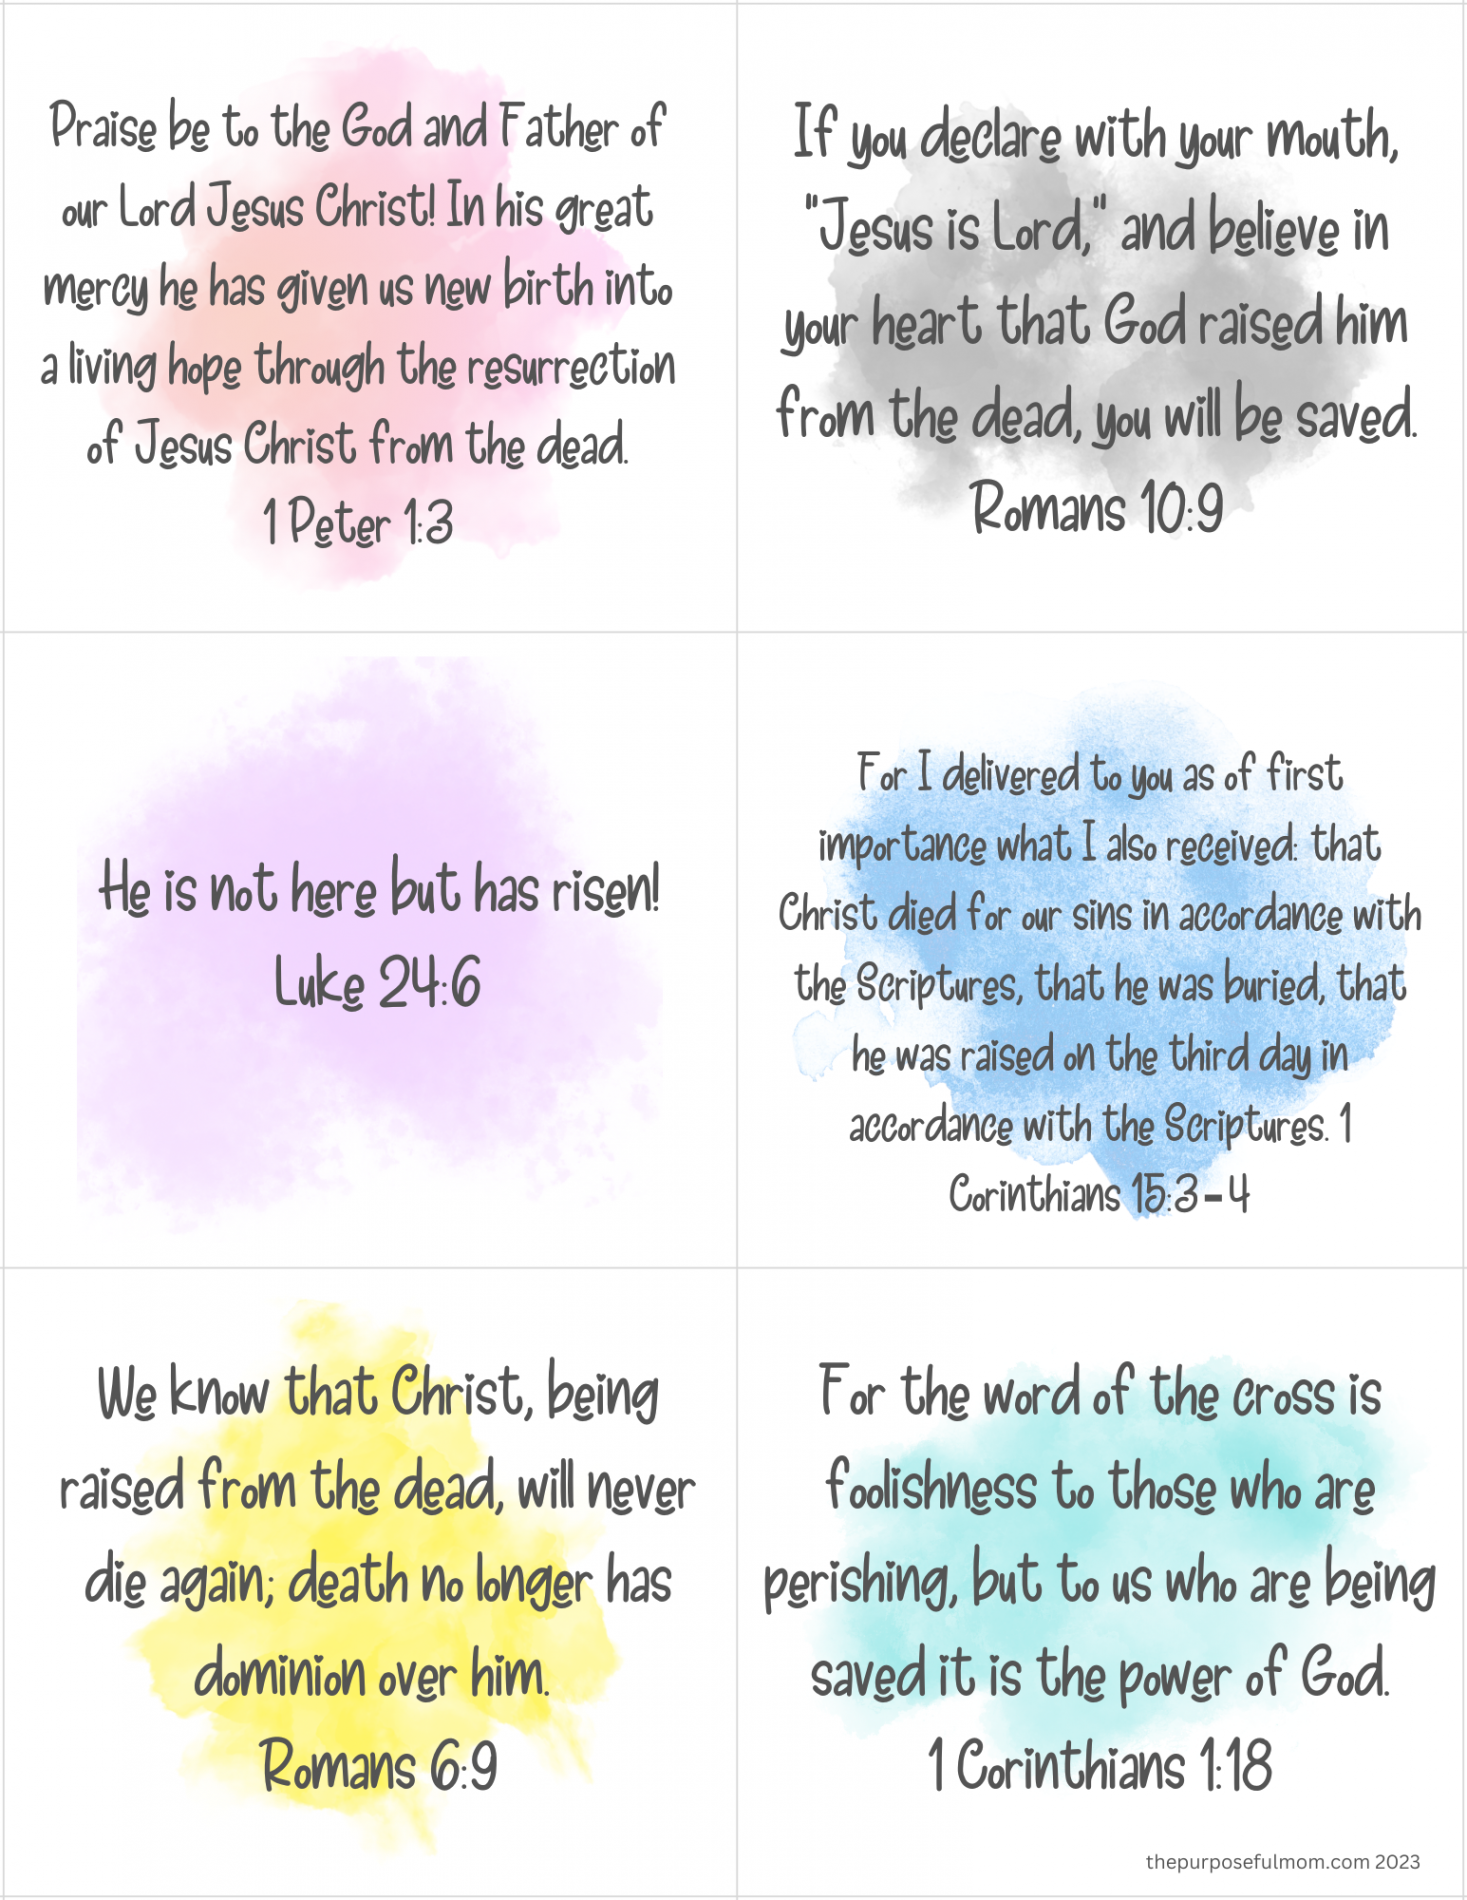 Praise be to the God and Father of
our Lord Jesus Christ! In his great
mercy he has given us new birth into
a living hope through the resurrection
of Jesus Christ from the dead.
1 Peter 1:3
If you declare with your mouth,
"Jesus is Lord," and believe in
your heart that God raised him
from the dead, you will be saved.
Romans 10:9
He is not here but has risen!
Luke 24:6
For I delivered to you as of first
importance what I also received: that
Christ died for our sins in accordance with
the Scriptures, that he was buried, that
he was raised on the third day in
accordance with the Scriptures. 1
Corinthians 15:3-4
We know that Christ, being
raised from the dead, will never
die again; death no longer has
dominion over him.
Romans 6:9
For the word of the cross is
foolishness to those who are
perishing, but to us who are being
saved it is the power of God.
1 Corinthians 1:18
thepurposefulmom.com 2023